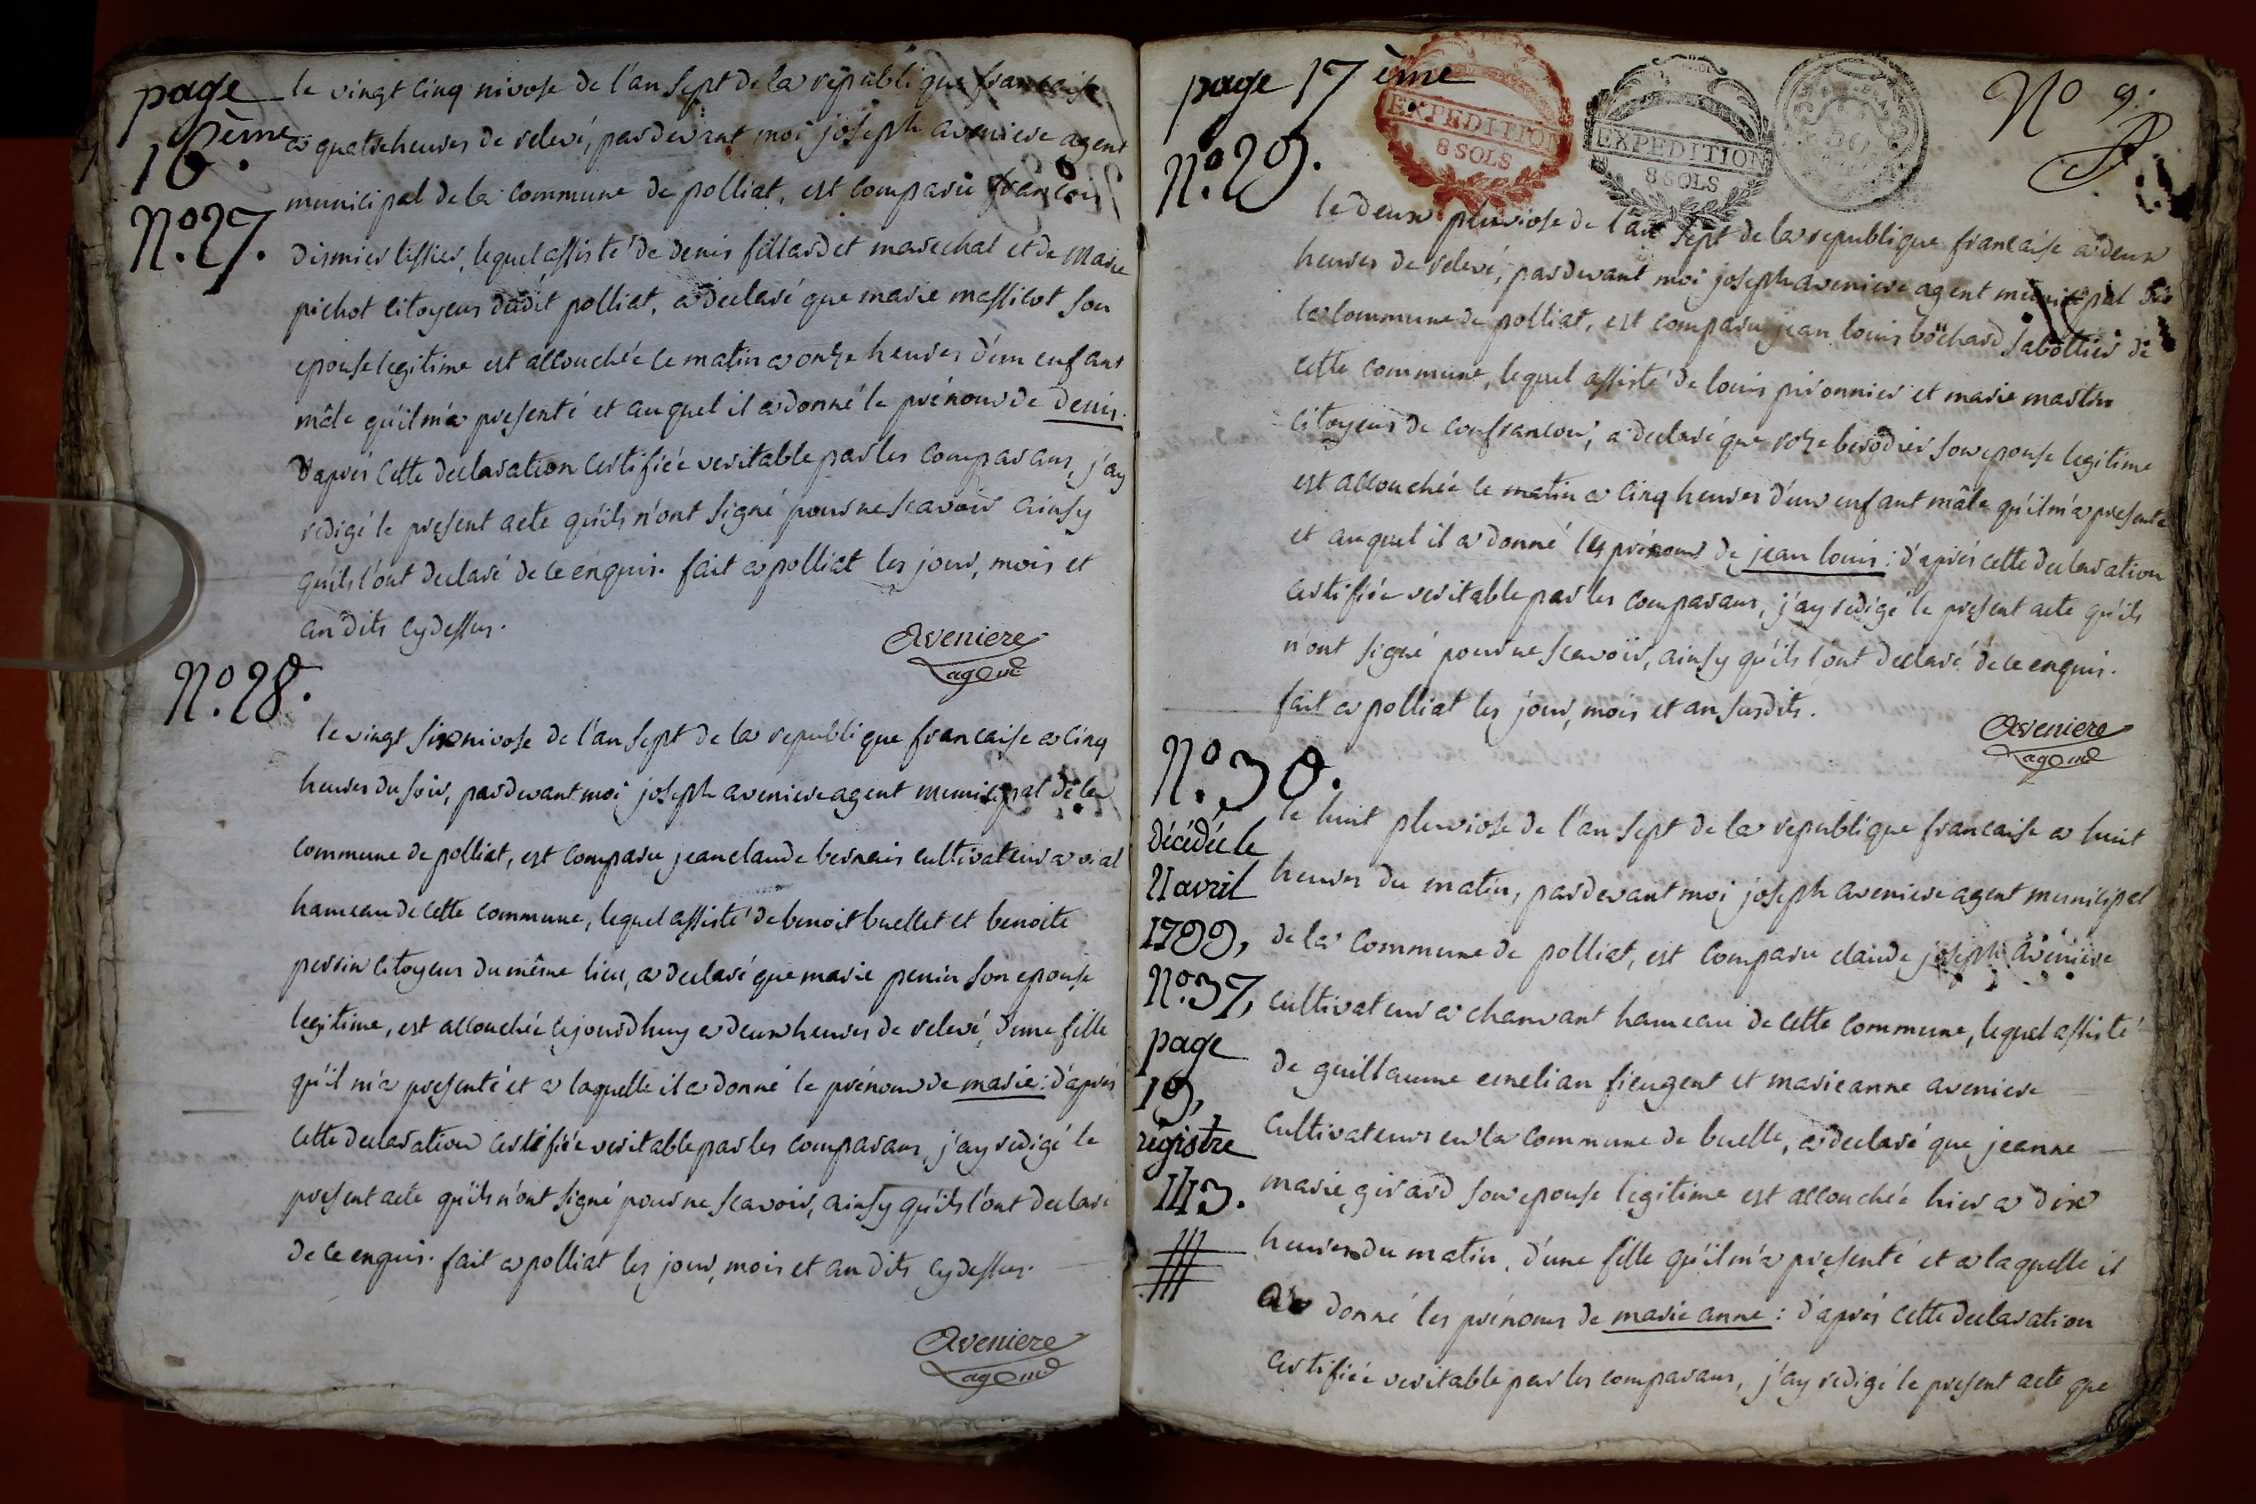 page
16.ème
No.27.
le vingt cinq nivose de l'an sept de la republique francaise
a quatre heures de relevé, pardevant moi joseph aveniere agent
municipal de la commune de polliat, est comparu françois
dismier tissier, lequel assisté de denis fillardet marechal et de marie
pichot citoyens dudit polliat, a declaré que marie massicot son
epouse legitime est accouchée ce matin a onze heures d'un enfant
mâle qu'il m'a presenté et auquel il a donné le prénom de denis.
d'après cette declaration certifiée veritable par les comparans, j'ay
redigé le present acte qu'ils n'ont signé pour ne scavoir ainsy
qu'ils l'ont declaré de ce enquis. fait a polliat les jour, mois et
an dits cydessus.
Aveniere
agent
No.28.
le vingt six nivose de l'an sept de la republique francaise a cinq
heures du soir, pardevant moi joseph aveniere agent municipal de la
commune de polliat, est comparu jean claude bernais cultivateur a vial
hameau de cette commune, lequel assisté de benoit buellet et benoite
perrin citoyens du même lieu, a declaré que marie penin son epouse
legitime, est accouchée cejourdhuy a deux heures de relevé, d'une fille
qu'il m'a presenté et a laquelle il a donné le prénom de marie: d'après
cette declaration certifiée veritable par les comparans, j'ay redigé le
present acte qu'ils n'ont signé pour ne scavoir, ainsy qu'ils l'ont declaré
de ce enquis. fait a polliat les jour, mois et an dits cydessus.
Aveniere
agent
page 17 ème
EXPEDITION
8 SOLS
EXPEDITION
8 SOLS
No 9.
No.29.
le deux pluviose de l'an sept de la republique francaise a deux
heures de relevé, pardevant moi joseph aveniere agent municipal de
la commune de polliat, est comparu jean louis bochard sabottier de
cette commune, lequel assisté de louis pironnier et marie martin
citoyens de confrancon, a declaré que roze berodier son epouse legitime
est accouchée ce matin a cinq heures d'un enfant mâle qu'il m'a presenté
et auquel il a donné les prénoms de jean louis: d'après cette declaration
certifiée veritable par les comparans, j'ay redigé le present acte qu'ils
n'ont signé pour ne scavoir, ainsy qu'ils l'ont declaré de ce enquis.
fait a polliat les jour, mois et an susdits.
Aveniere
agent
No.30.
décédée le
21 avril
1799,
No.37,
page
19,
régistre
143.
le huit pluviose de l'an sept de la republique francaise a huit
heures du matin, pardevant moi joseph aveniere agent municipal
de la commune de polliat, est comparu claude joseph aveniere
cultivateur a chanvant hameau de cette commune, lequel assisté
de guillaume emelian fieugent et marie anne aveniere
cultivateurs en la commune de buelle, a declaré que jeanne
marie girard son epouse legitime est accouchée hier a dix
heures du matin, d'une fille qu'il m'a presenté et a laquelle il
a donné les prénoms de marie anne: d'après cette declaration
certifiée veritable par les comparans, j'ay redigé le present acte que